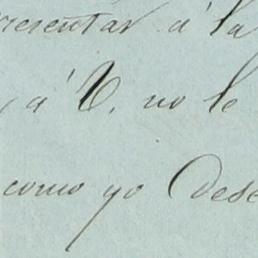 resentar á la
á V. no le
como yo dese